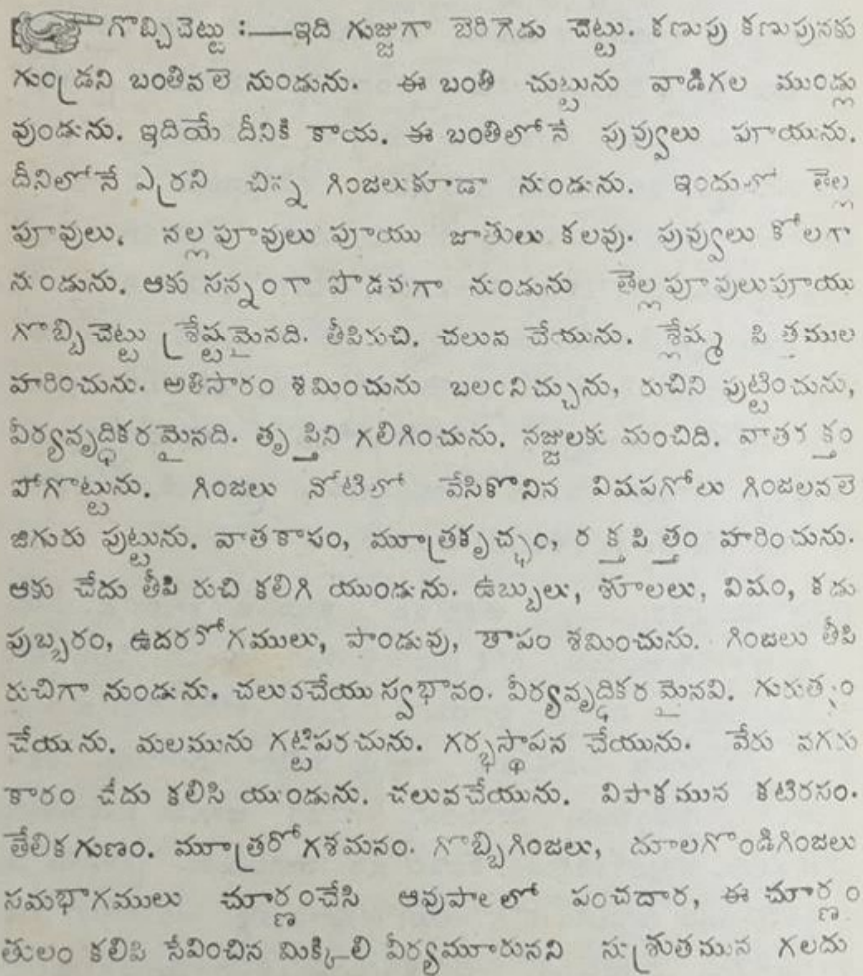 గొబ్బిచెట్టు :—ఇది గుజ్జుగా బెరిగెడు చెట్టు. కణుపు కణుపునకు
గుండ్రని బంతివలె నుండును. ఈ బంతి చుట్టును వాడిగల ముండ్లు
వుండును. ఇదియే దీనికి కాయ. ఈ బంతిలోనే పువ్వులు పూయును.
దీనిలోనే ఎర్రని చిన్న గింజలుకూడా నుండును. ఇందులో తెల్ల
పూవులు, నల్లపూవులు పూయు జాతులు కలవు. పువ్వులు కోలగా
నుండును. ఆకు సన్నంగా పొడవుగా నుండును తెల్లపూవులుపూయు
గొబ్బిచెట్టు శ్రేష్టమైనది. తీపిరుచి. చలువ చేయును. శ్లేష్మ పిత్తముల
హరించును. అతిసారం శమించును బలంనిచ్చును, రుచిని పుట్టించును,
వీర్యవృద్ధికరమైనది. తృప్తిని గలిగించును. నజ్జులకు మంచిది. వాతరక్తం
పోగొట్టును. గింజలు నోటిలో వేసికొనిన విషపగోలు గింజలవలె
జిగురు పుట్టును. వాతకాసం, మూత్రకృచ్ఛం, రక్తపిత్తం హరించును.
ఆకు చేదు తీపి రుచి కలిగి యుండును. ఉబ్బులు, శూలలు, విషం, కడు
పుబ్బరం, ఉదరరోగములు, పాండువు, తాపం శమించును. గింజలు తీపి
రుచిగా నుండును. చలువచేయు స్వభావం. వీర్యవృద్ధికరమైనవి. గురుత్వం
చేయును. మలమును గట్టిపరచును. గర్భస్థాపన చేయును. వేరు వగరు
కారం చేదు కలిసి యుండును. చలువచేయును. విపాకమున కటిరసం.
తేలికగుణం. మూత్రరోగశమనం. గొబ్బిగింజలు, దూలగొండిగింజలు
సమభాగములు చూర్ణంచేసి ఆవుపాలలో పంచదార, ఈ చూర్ణం
తులం కలిపి సేవించిన మిక్కిలి వీర్యమూరునని సుశ్రుతమున గలదు